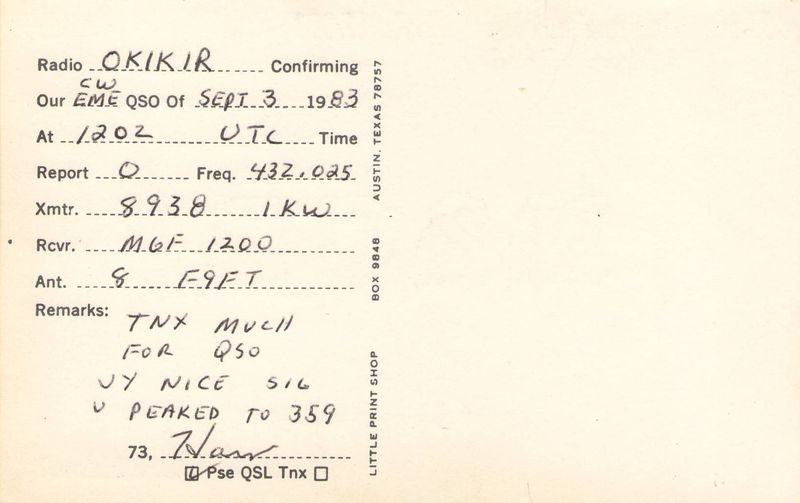 Radio OK1KIR Confirming
CW
Our EME QSO Of SEPT 3 1983
At 1202 UTC Time
Report O Freq. 432.025
Xmtr. 8938 1KW
Rcvr. MGF 1200
Ant. 8 F9FT
Remarks:
TNX MUCH
FOR QSO
VY NICE SIG
U PEAKED TO 359
73,
Pse QSL Tnx
LITTLE PRINT SHOP BOX 9848 AUSTIN, TEXAS 78757